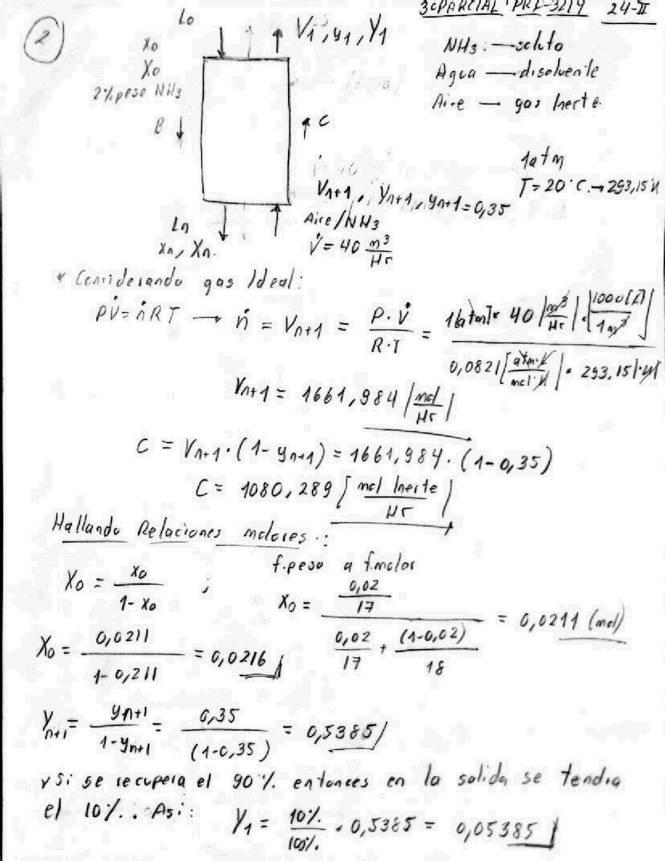 3er PARCIAL PRQ-3219 24-II
2
L₀
V₁, y₁, Y₁
x₀
X₀
2% peso NH₃
B
C
NH₃: — soluto
Agua — disolvente
Aire — gas Inerte.
1atm
T = 20°C. → 293,15K
Vₙ₊₁, Yₙ₊₁, yₙ₊₁ = 0,35
Aire/NH₃
V̇ = 40 m³/Hr
Ln
xn, Xn.
* Considerando gas Ideal:
PV̇ = ṅRT → ṅ = Vₙ₊₁ = P·V̇ / R·T = 1[atm] * 40 [m³/Hr] * [1000[l] / 1m³] / 0,0821 [atm·l / mol·K] * 293,15[K]
Vₙ₊₁ = 1661,984 [mol/Hr]
C = Vₙ₊₁·(1-yₙ₊₁) = 1661,984 · (1-0,35)
C = 1080,289 [mol Inerte / Hr]
Hallando Relaciones molares.:
f.peso a f.molar
X₀ = x₀ / 1-x₀ ; x₀ = (0,02/17) / (0,02/17 + (1-0,02)/18) = 0,0211 (mol)
X₀ = 0,0211 / 1-0,211 = 0,0216
Yₙ₊₁ = yₙ₊₁ / 1-yₙ₊₁ = 0,35 / (1-0,35) = 0,5385
* Si se recupera el 90% entonces en la salida se tendria
el 10%.. Asi: Y₁ = 10% / 100% * 0,5385 = 0,05385